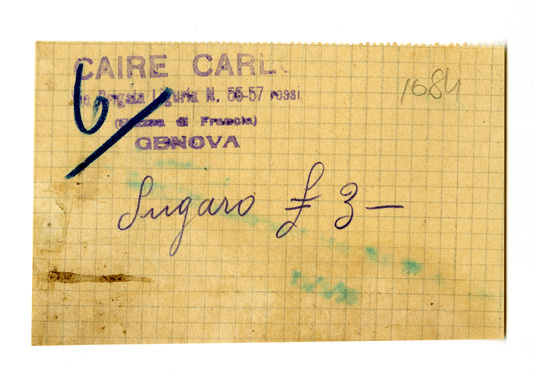 CAIRE CARLO
Via Brigata Liguria N. 55-57 rossi
di Francia)
GENOVA
6/
1684
Sugaro £ 3 —